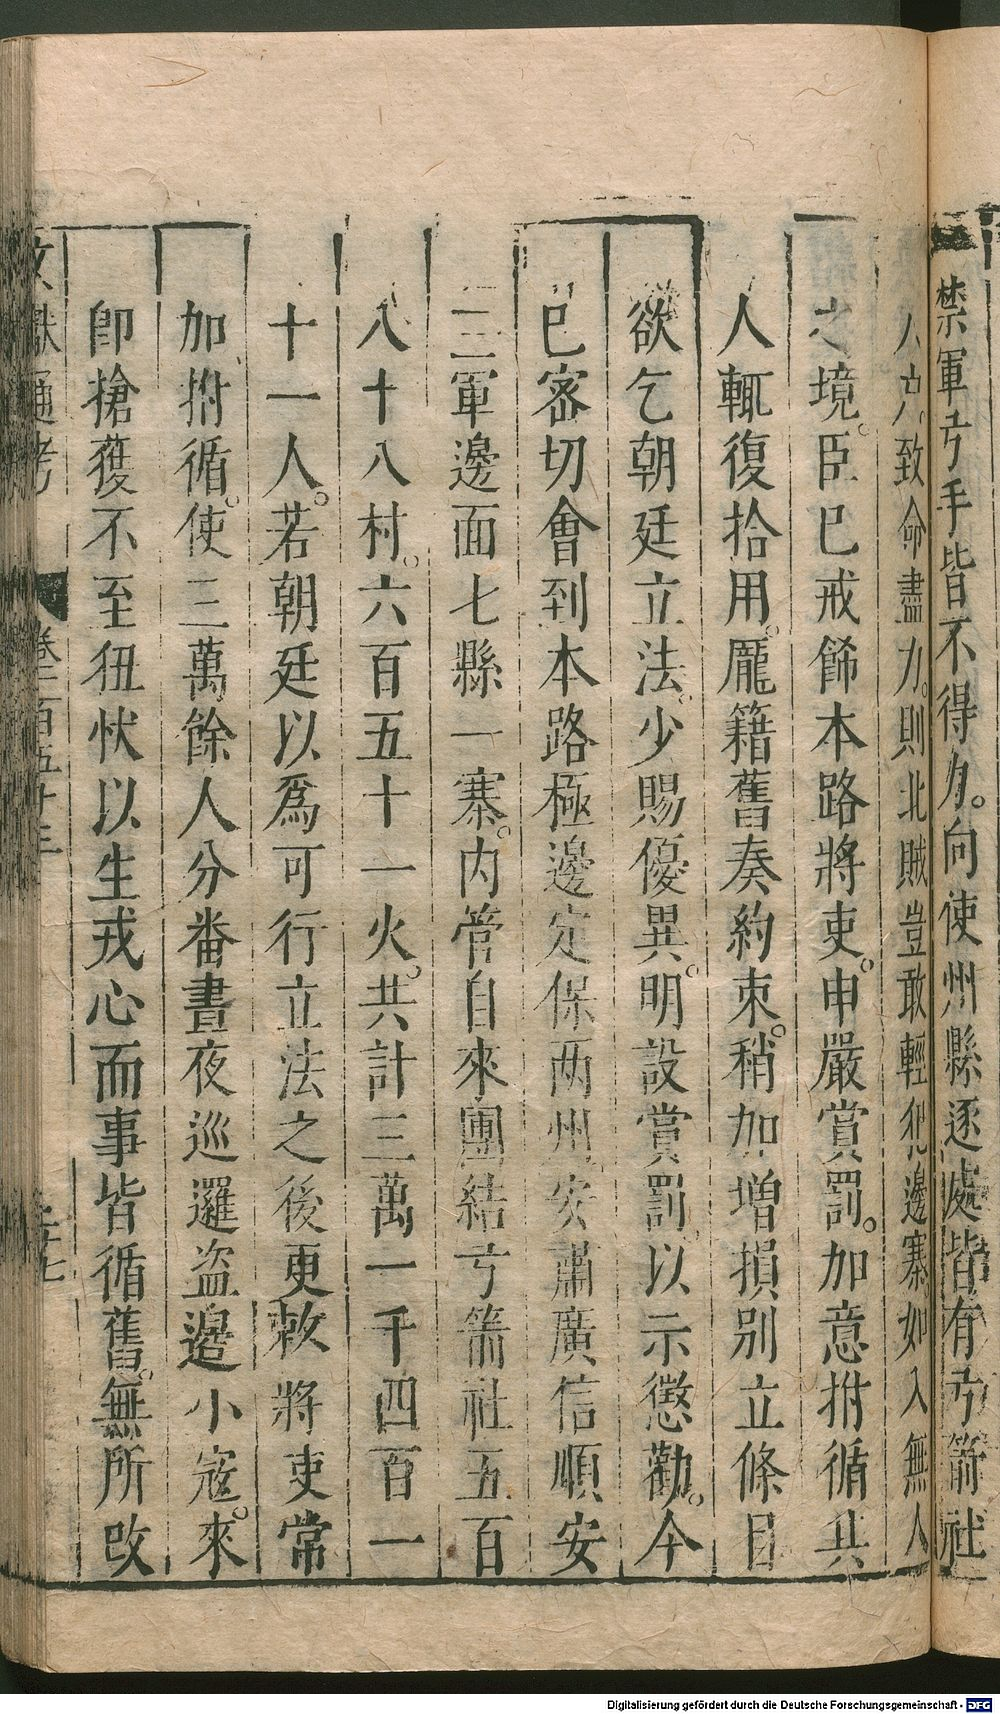 禁軍弓手皆不得力。向使州縣逐處皆有弓箭社
人户。致命盡力。則北賊豈敢輕犯邊寨如入無人
之境。臣已戒飾本路將吏。申嚴賞罰。加意拊循其
人輒復拾用。龐籍舊奏約束。稍加增損別立條目
欲乞朝廷立法。少賜優異。明設賞罰。以示懲勸。今
已密切會到本路極邊定保兩州安肅廣信順安
三軍邊面七縣一寨。内管自來團結弓箭社五百
八十八村。六百五十一火。共計三萬一千四百一
十一人。若朝廷以爲可行立法之後更敕將吏常
加拊循。使三萬餘人分番晝夜巡邏盜邉小寇。來
卽搶獲不至狃忕以生戎心而事皆循舊。無所改
文獻通考
卷一百五十三
Digitalisierung gefördert durch die Deutsche Forschungsgemeinschaft - DFG